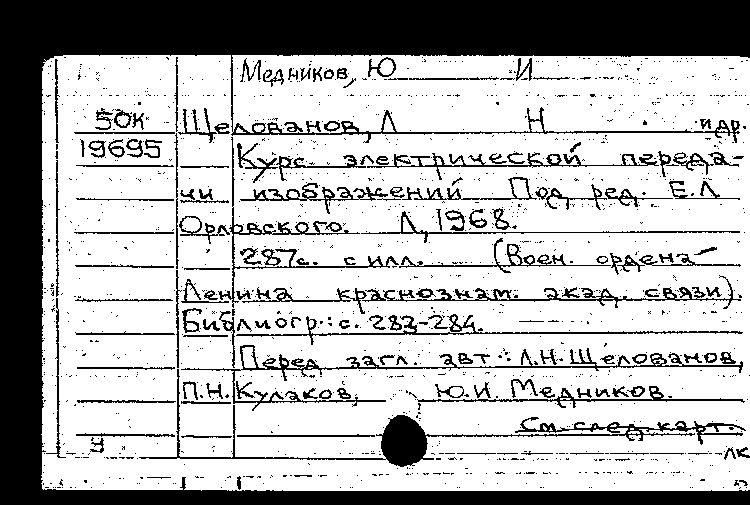 Медников, Ю И
50К Щелованов, Л Н и др.
19695 Курс электрической переда-
чи изображений Под ред. Е.Л
Орловского. Л, 1968.
287с. с илл. (Воен. ордена
Ленина краснознам. акад. связи).
Библиогр.: с. 283-284.
Перед загл. авт.: Л.Н. Щелованов,
П.Н. Кулаков, Ю.И. Медников.
См. след. карт.
лк